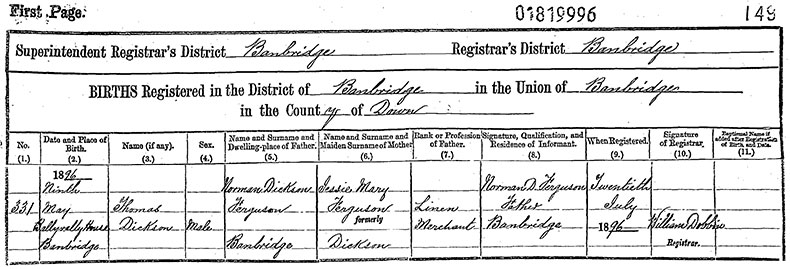 First Page. 01819996 149
Superintendent Registrar's District Banbridge Registrar's District Banbridge
BIRTHS Registered in the District of Banbridge in the Union of Banbridge
in the County of Down
No. (1.) Date and Place of Birth. (2.) Name (if any). (3.) Sex. (4.) Name and Surname and Dwelling-place of Father. (5.) Name and Surname and Maiden Surname of Mother (6.) Rank or Profession of Father. (7.) Signature, Qualification, and Residence of Informant. (8.) When Registered. (9.) Signature of Registrar. (10.) Baptismal Name if added after Registration of Birth, and Date. (11.)
1896
Ninth Norman Dickson Jessie Mary Norman D. Ferguson Twentieth
331 May Thomas Ferguson Ferguson Linen Father July
formerly
House Dickson Male Merchant Banbridge 1896 William Dobbin
Banbridge Banbridge Dickson Registrar.